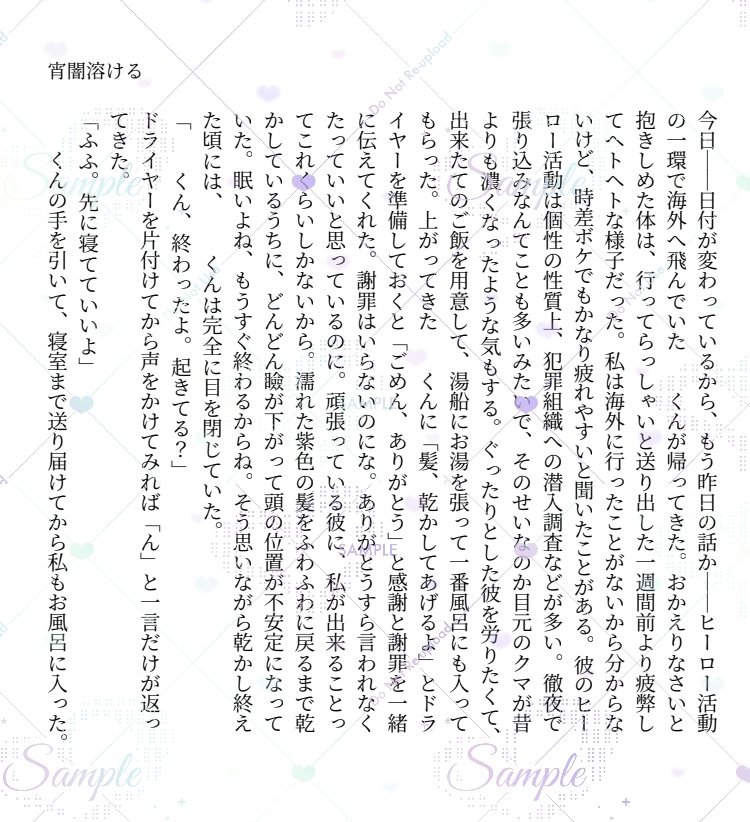 宵闇溶ける
今日――日付が変わっているから、もう昨日の話か――ヒーロー活動
の一環で海外へ飛んでいた　　くんが帰ってきた。おかえりなさいと
抱きしめた体は、行ってらっしゃいと送り出した一週間前より疲弊し
てヘトヘトな様子だった。私は海外に行ったことがないから分からな
いけど、時差ボケでもかなり疲れやすいと聞いたことがある。彼のヒー
ロー活動は個性の性質上、犯罪組織への潜入調査などが多い。徹夜で
張り込みなんてことも多いみたいで、そのせいなのか目元のクマが昔
よりも濃くなったような気もする。ぐったりとした彼を労りたくて、
出来たてのご飯を用意して、湯船にお湯を張って一番風呂にも入って
もらった。上がってきた　　くんに「髪、乾かしてあげるよ」とドラ
イヤーを準備しておくと「ごめん、ありがとう」と感謝と謝罪を一緒
に伝えてくれた。謝罪はいらないのにな。ありがとうすら言われなく
たっていいと思っているのに。頑張っている彼に、私が出来ることっ
てこれくらいしかないから。濡れた紫色の髪をふわふわに戻るまで乾
かしているうちに、どんどん瞼が下がって頭の位置が不安定になって
いた。眠いよね、もうすぐ終わるからね。そう思いながら乾かし終え
た頃には、　　くんは完全に目を閉じていた。
「　　くん、終わったよ。起きてる？」
ドライヤーを片付けてから声をかけてみれば「ん」と一言だけが返っ
てきた。
「ふふ。先に寝てていいよ」
　　くんの手を引いて、寝室まで送り届けてから私もお風呂に入った。
Sample
Sample
Sample
Sample
SAMPLE
SAMPLE
Do Not Re-upload
Do Not Re-upload